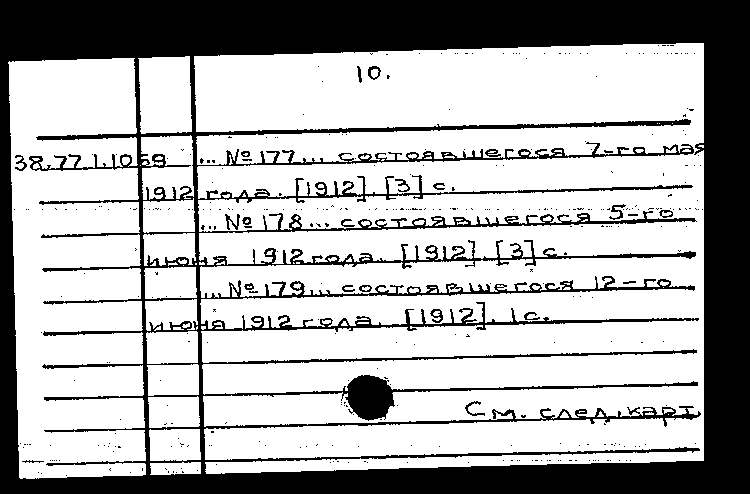 10.
38.77.1.1059 ... № 177... состоявшегося 7-го мая
1912 года. [1912]. [3] с.
... № 178... состоявшегося 5-го
июня 1912 года. [1912]. [3] с.
... № 179... состоявшегося 12-го
июня 1912 года. [1912]. 1 с.
См. след. карт.